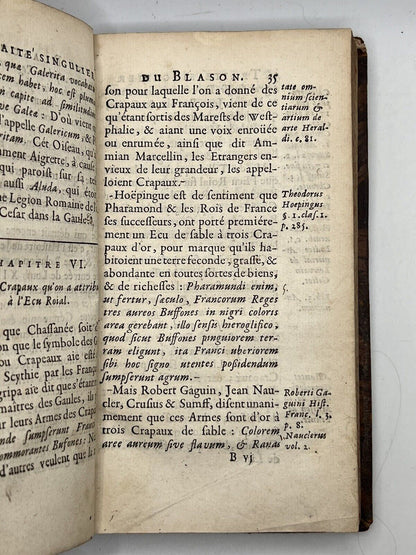 AITE SINGULIER
que Galerita vocabu
cem habet, hoc est plumeam
in capite ad similitudi
ve Galeæ: D'où vient que
l'appelle Galericum & Pli
ritam. Cét Oiseau, qu'on
mmément Aigrette, à cause
qui paroist sur sa teste
aussi Aluda, qui étoit
ne Legion Romaine de
Cesar dans la Gaule.
CHAPITRE VI.
Crapaux qu'on a attribué
à l'Ecu Roial.
que Chassanée soit d'
que le symbole des G
ou Crapeaux aie esté
Scythie par les Franc
gripa aie dit que
maîtres des Gaules, ils
r leurs Armes des Crap
nde sumpserunt Franci
mmorantes Bufones: Ne
d'autres veulent que la
DU BLASON. 35
son pour laquelle l'on a donné des
Crapaux aux François, vient de ce
qu'étant sortis des Marests de West-
phalie, & aiant une voix enroüée
ou enrumée, ainsi que dit Am-
mian Marcellin, les Etrangers en-
vieux de leur grandeur, les appel-
loient Crapaux.
Hoëpingue est de sentiment que
Pharamond & les Rois de France
ses successeurs, ont porté premiére-
ment un Ecu de sable à trois Cra-
paux d'or, pour marque qu'ils ha-
bitoient une terre feconde, grasse, &
abondante en toutes sortes de biens,
& de richesses: Pharamundi enim,
ut fertur, sæculo, Francorum Reges
tres aureos Buffones in nigri coloris
area gerebant, illo sensu hieroglifico,
quod sicut Buffones pinguiorem ter-
ram eligunt, ita Franci uberiorem
sibi hoc signo utentes possidendum
sumpserunt agrum.
Mais Robert Gaguin, Jean Nau-
cler, Crusius & Sumff, disent unani-
mement que ces Armes sont d'or à
trois Crapaux de sable: Colorem
areæ aureum sive flavum, & Ranas
B vj
tate om-
nium scien-
tiarum &
artium de
arte Heral-
di. c. 81.
Theodorus
Hoepingus
§. 1. clas. 1.
p. 285.
Roberti Ga-
guini Hist.
Franc. l. 3.
p. 8.
Nauclerus
vol. 2.